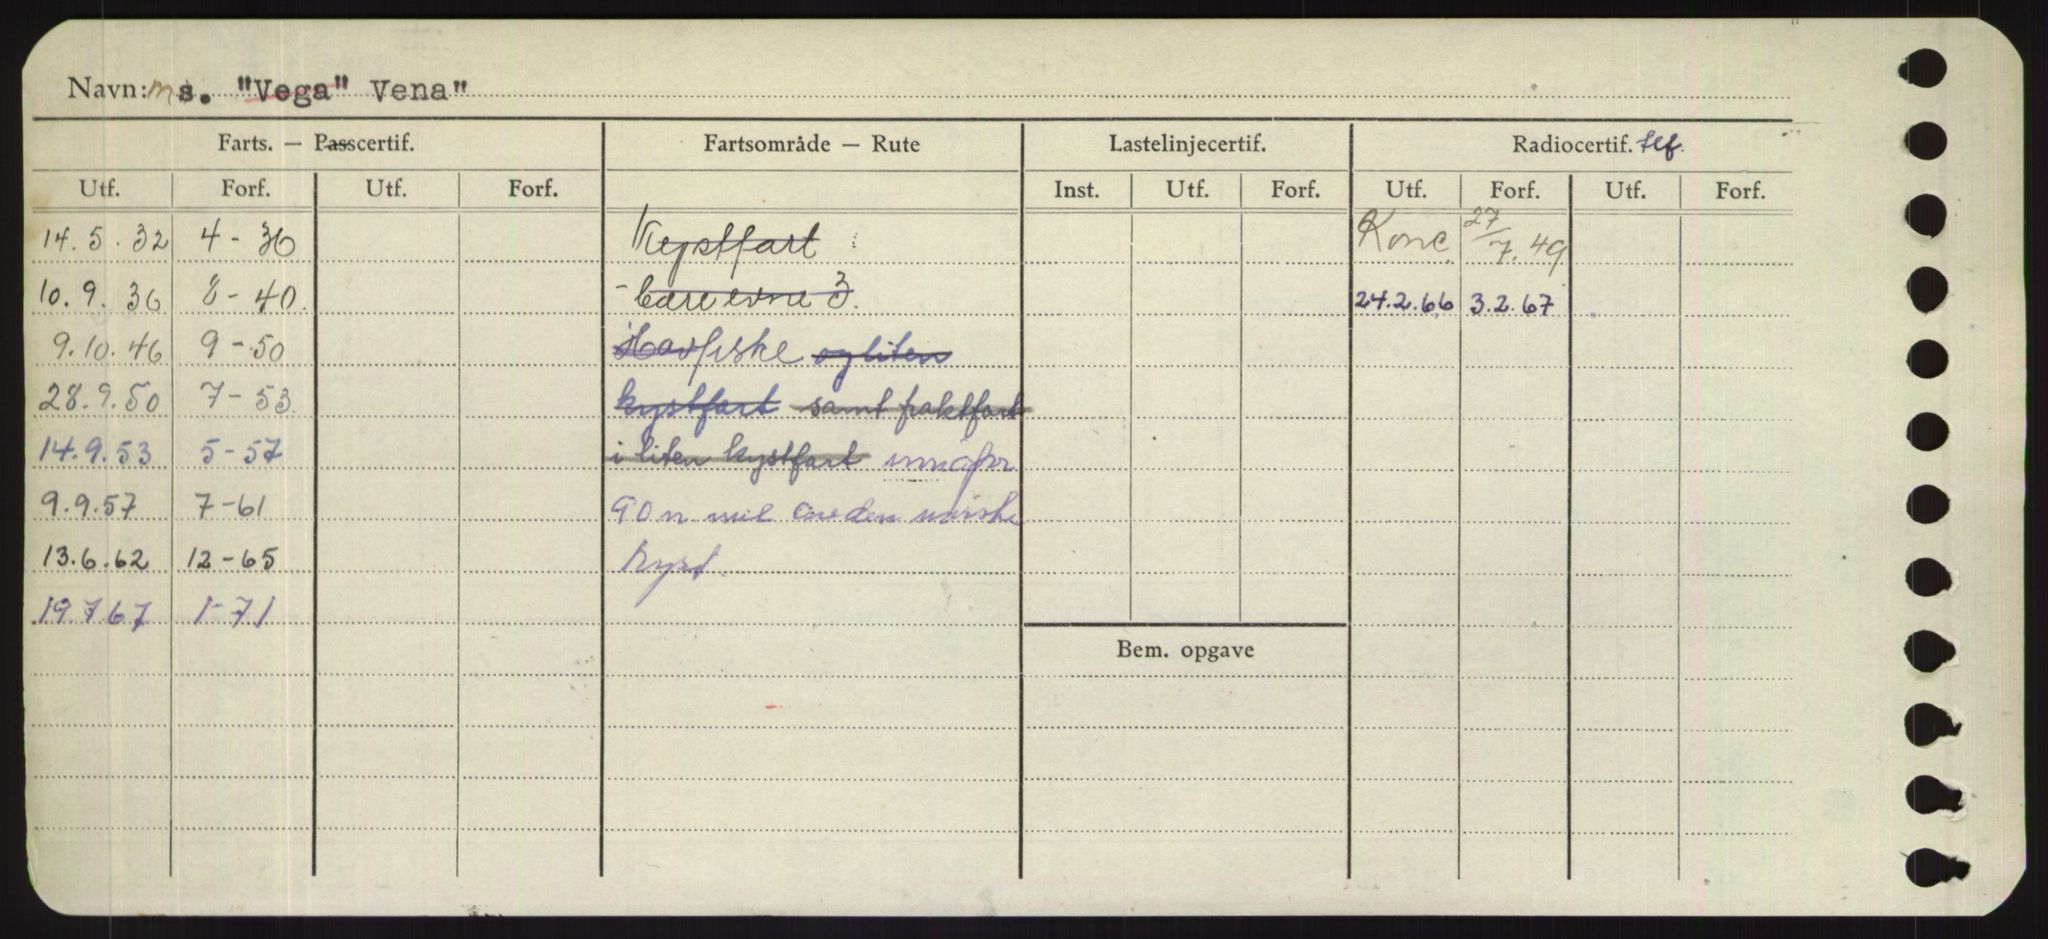 Navn: ms. "Vega" Vena"
Farts. — Passcertif. Fartsområde — Rute Lastelinjecertif. Radiocertif. tlf.
Utf. Forf. Utf. Forf. Inst. Utf. Forf. Utf. Forf. Utf. Forf.
14.5.32 4-36 Kystfart Konc. 27/7.49
10.9.36 8-40. - bæreevne 3. 24.2.66 3.2.67
9.10.46 9-50 Havfiske og liten
28.9.50 7-53 kystfart samt fraktfart
14.9.53 5-57 i liten kystfart innafor
9.9.57 7-61 90 n mil av den norske
13.6.62 12-65 kyst.
19.7.67 1-71
Bem. opgave